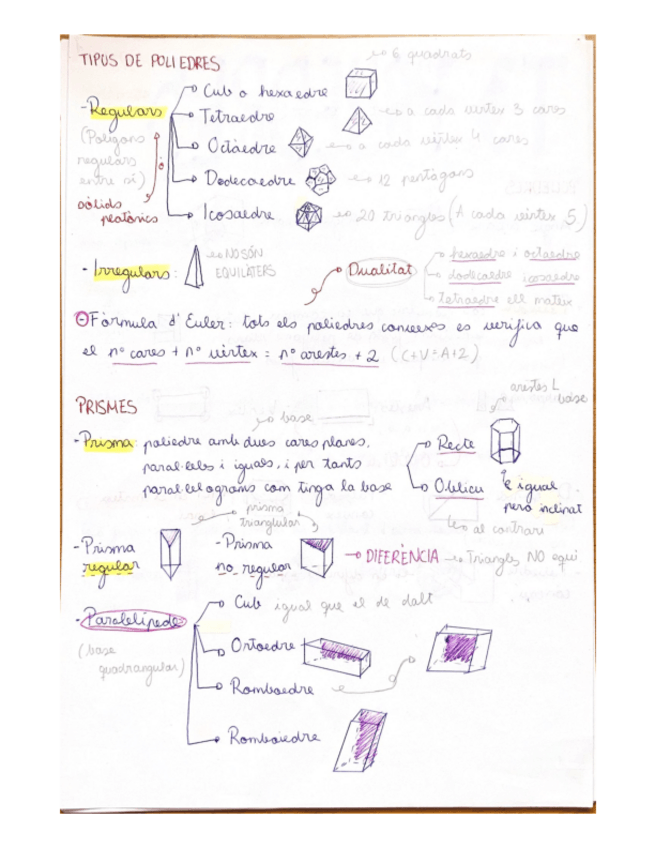 TIPUS DE POLIEDRES
→ 6 quadrats
- Regulars
→ Cub o hexaedre
→ Tetraedre
→ a cada vèrtex 3 cares
(Polígons regulars entre sí)
→ Octàedre
→ a cada vèrtex 4 cares
→ Dodecaedre
→ 12 pentàgons
sòlids platònics
→ Icosaedre
→ 20 triangles (A cada vèrtex 5)
- Irregulars:
→ NO SÓN EQUILÀTERS
→ Dualitat
→ hexaedre i octaedre
→ dodecaedre icosaedre
→ tetraedre ell mateix
- Fórmula d'Euler: tots els poliedres convexes es verifica que
el nº cares + nº vèrtex = nº arestes + 2 (C+V=A+2)
PRISMES
→ base
arestes L base
- Prisma: poliedre amb dues cares planes,
paral·leles i iguals, i per tants
paral·lelograms com tinga la base
→ Recte
→ Oblicu
é igual
però inclinat
→ al contrari
prisma triangular
- Prisma regular
- Prisma no regular
→ DIFERÈNCIA → Triangles NO equi
- Paralelípede
(base quadrangular)
→ Cub igual que el de dalt
→ Ortoedre
→ Romboedre
→ Romboiedre